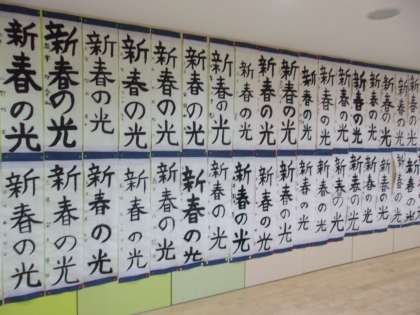 新春の光
新春の光
新春の光
新春の光
新春の光
新春の光
新春の光
新春の光
新春の光
新春の光
新春の光
新春の光
新春の光
新春の光
新春の光
新春の光
新春の光
新春の光
新春の光
新春の光
新春の光
新春の光
新春の光
新春の光
新春の光
新春の光
新春の光
新春の光
新春の光
新春の光
新春の光
新春の光
新春の光
新春の光
新春の光
新春の光